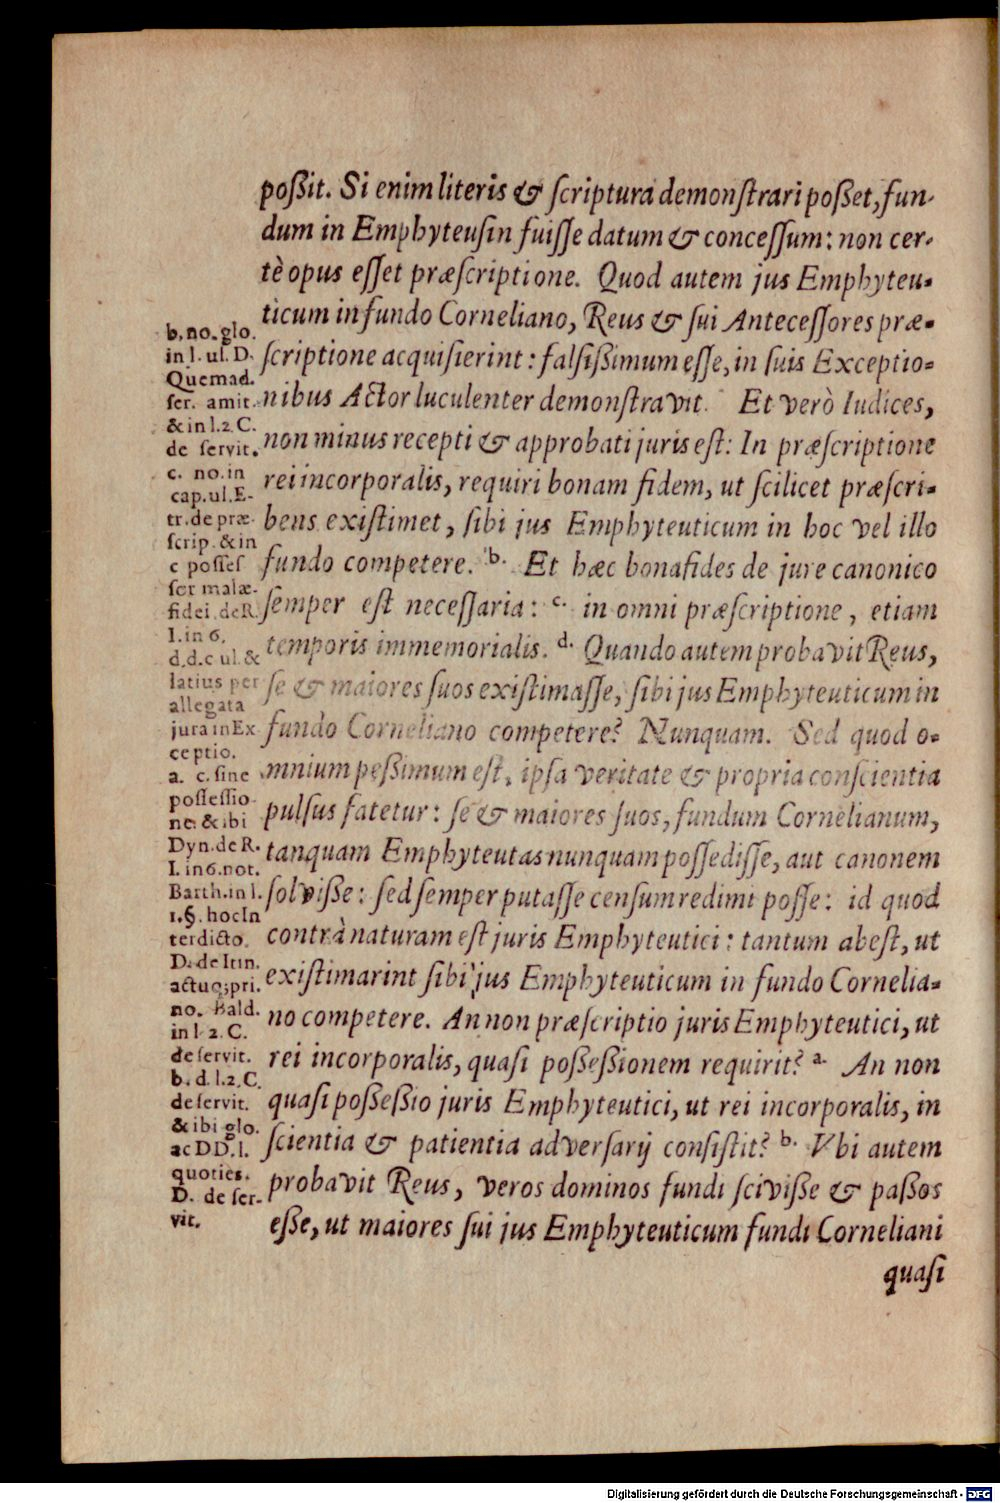 poßit. Si enim literis & ſcriptura demonſtrari poßet, fun-
dum in Emphyteuſin fuiſſe datum & conceſſum: non cer-
tè opus eſſet præſcriptione. Quod autem jus Emphyteu-
ticum in fundo Corneliano, Reus & ſui Anteceſſores præ-
ſcriptione acquiſierint: falſißimum eſſe, in ſuis Exceptio-
nibus Actor luculenter demonſtravit. Et verò Iudices,
non minus recepti & approbati juris eſt: In præſcriptione
rei incorporalis, requiri bonam fidem, ut ſcilicet præſcri-
bens exiſtimet, ſibi jus Emphyteuticum in hoc vel illo
fundo competere. b. Et hæc bona fides de jure canonico
ſemper eſt neceſſaria: c. in omni præſcriptione, etiam
temporis immemorialis. d. Quando autem probavit Reus,
ſe & maiores ſuos exiſtimaſſe, ſibi jus Emphyteuticum in
fundo Corneliano competere? Nunquam. Sed quod o-
mnium peßimum eſt, ipſa veritate & propria conſcientia
pulſus fatetur: ſe & maiores ſuos, fundum Cornelianum,
tanquam Emphyteutas nunquam poſſediſſe, aut canonem
ſolviße: ſed ſemper putaſſe cenſum redimi poſſe: id quod
contrà naturam eſt juris Emphyteutici: tantum abeſt, ut
exiſtimarint ſibi jus Emphyteuticum in fundo Cornelia-
no competere. An non præſcriptio juris Emphyteutici, ut
rei incorporalis, quaſi poßeßionem requirit? a. An non
quaſi poßeßio juris Emphyteutici, ut rei incorporalis, in
ſcientia & patientia adverſarij conſiſtit? b. Vbi autem
probavit Reus, veros dominos fundi ſciviße & paßos
eße, ut maiores ſui jus Emphyteuticum fundi Corneliani
quaſi
b. no. glo.
in l. ul. D.
Quemad.
ſer. amit.
& in l. 2. C.
de ſervit.
c. no. in
cap. ul. E-
tr. de præ-
ſcrip. & in
c poſſeſ
ſor malæ-
fidei. de R.
I. in 6.
d. d. c ul. &
latius per
allegata
jura in Ex
ceptio.
a. c. ſine
poſſeſſio-
ne. & ibi
Dyn. de R.
I. in 6. not.
Barth. in l.
1. §. hoc In
terdicto.
D. de Itin.
actuq; pri.
no. Bald.
in l 2. C.
de ſervit.
b. d. l. 2. C.
de ſervit.
& ibi glo.
ac DD. l.
quoties.
D. de ſer-
vit.
Digitalisierung gefördert durch die Deutsche Forschungsgemeinschaft - DFG